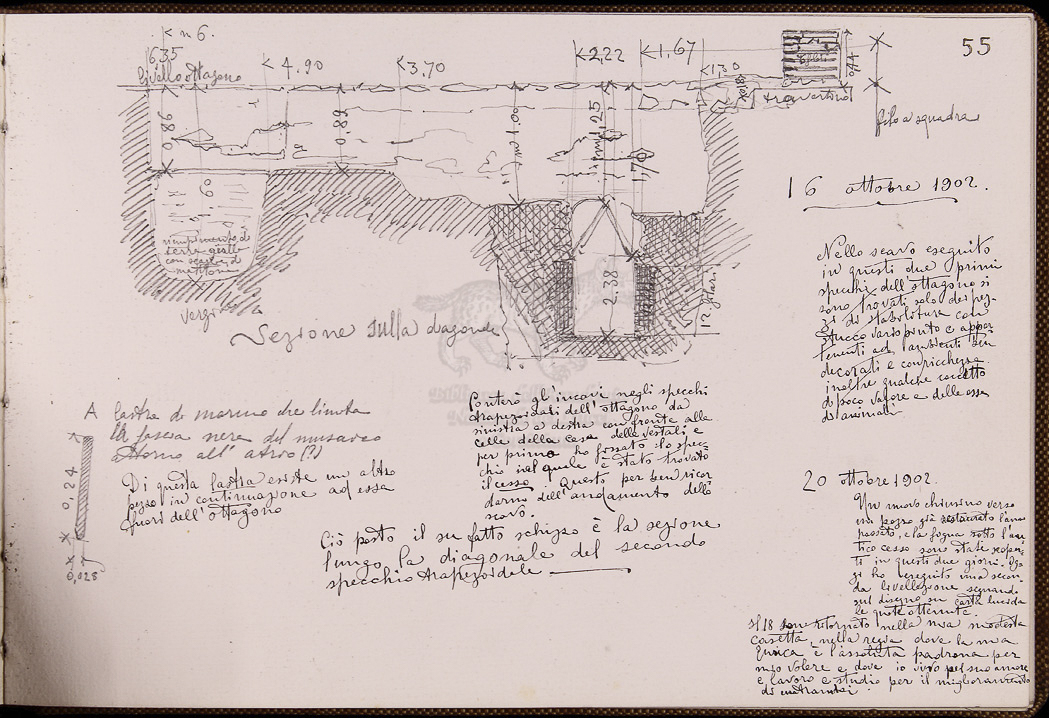 55
n 6.
6,35
livello ottagono
4.90
3,70
2,22
1,67
1,30
0,44
travertino
filo a squadra
0,86
0,89
1,00
1,25
1,70
60
riempimento di
terra gialla
con scaglie di
mattoni
Vergine
2.38
12 filari
Sezione sulla diagonale
16 ottobre 1902.
Nello scavo eseguito
in questi due primi
specchi dell'ottagono si
sono trovati solo dei pez-
zi di stabilitura con
stucco variopinto e appar
tenenti ad ambienti ben
decorati e con ricchezza
inoltre qualche coccetto
di poco valore e delle ossa
di animali
A lastra di marmo che limita
la fascia nera del musaico
attorno all' atrio (?)
0,24
0,028
Di questa lastra esiste un altro
pezzo in continuazione ad essa
fuori dell'ottagono
Conterò gl'incavi negli specchi
trapezoidali dell'ottagono da
sinistra a destra con fronte alle
celle della casa delle Vestali e
per primo ho fissato lo spec-
chio nel quale è stato trovato
il cesso. Questo per ben ricor
darmi dell'andamento dello
scavo.
Ciò posto il su fatto schizzo è la sezione
lungo la diagonale del secondo
specchio trapezoidale
20 ottobre 1902.
Un nuovo chiusino verso
un pozzo già restaurato l'anno
passato, e la fogna sotto l'an
tico cesso sono state scoper
ti in questi due giorni. Og
gi ho eseguito una secon
da livellazione segnando
sul disegno su carta lucida
le quote ottenute.
Il 18 sono ritornato nella mia modesta
casetta, nella reggia dove la mia
è l'assoluta padrona per
mio volere e dove io vivo pel suo amore
e lavoro e studio per il miglioramento
di entrambi.